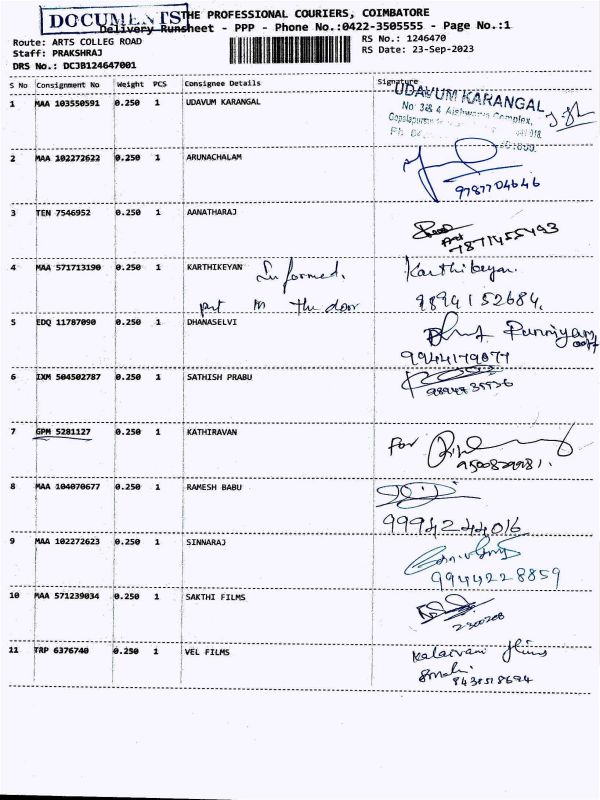 DOCUMENTS
THE PROFESSIONAL COURIERS, COIMBATORE
Delivery Runsheet - PPP - Phone No.:0422-3505555 - Page No.:1
Route: ARTS COLLEG ROAD
RS No.: 1246470
Staff: PRAKSHRAJ
RS Date: 23-Sep-2023
DRS No.: DCJB124647001
S No Consignment No Weight PCS Consignee Details Signature
1 MAA 103550591 0.250 1 UDAVUM KARANGAL UDAVUM KARANGAL
No: 3&4 Aishwarya Complex,
2 MAA 102272622 0.250 1 ARUNACHALAM
9787704646
3 TEN 7546952 0.250 1 AANATHARAJ
7871455493
4 MAA 571713190 0.250 1 KARTHIKEYAN Informed. Karthikeyan.
put in the door 9894152684.
5 EDQ 11787090 0.250 1 DHANASELVI
9944179077
6 IXM 504502787 0.250 1 SATHISH PRABU
7 GPM 5281127 0.250 1 KATHIRAVAN For
8 MAA 104070677 0.250 1 RAMESH BABU
9994244016
9 MAA 102272623 0.250 1 SINNARAJ
9944228859
10 MAA 571239034 0.250 1 SAKTHI FILMS
2300208
11 TRP 6376740 0.250 1 VEL FILMS Kalaivani films
8438518694